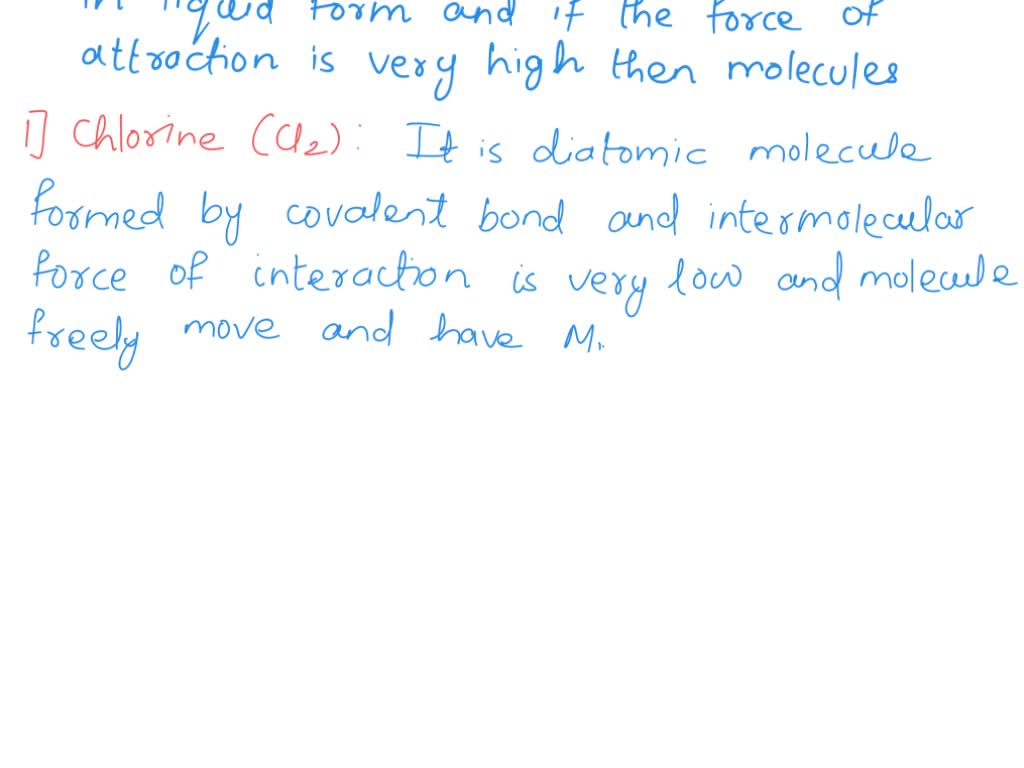 in liquid form and if the force of
attraction is very high then molecules
1] Chlorine (Cl2): It is diatomic molecule
formed by covalent bond and intermolecular
force of interaction is very low and molecule
freely move and have M.